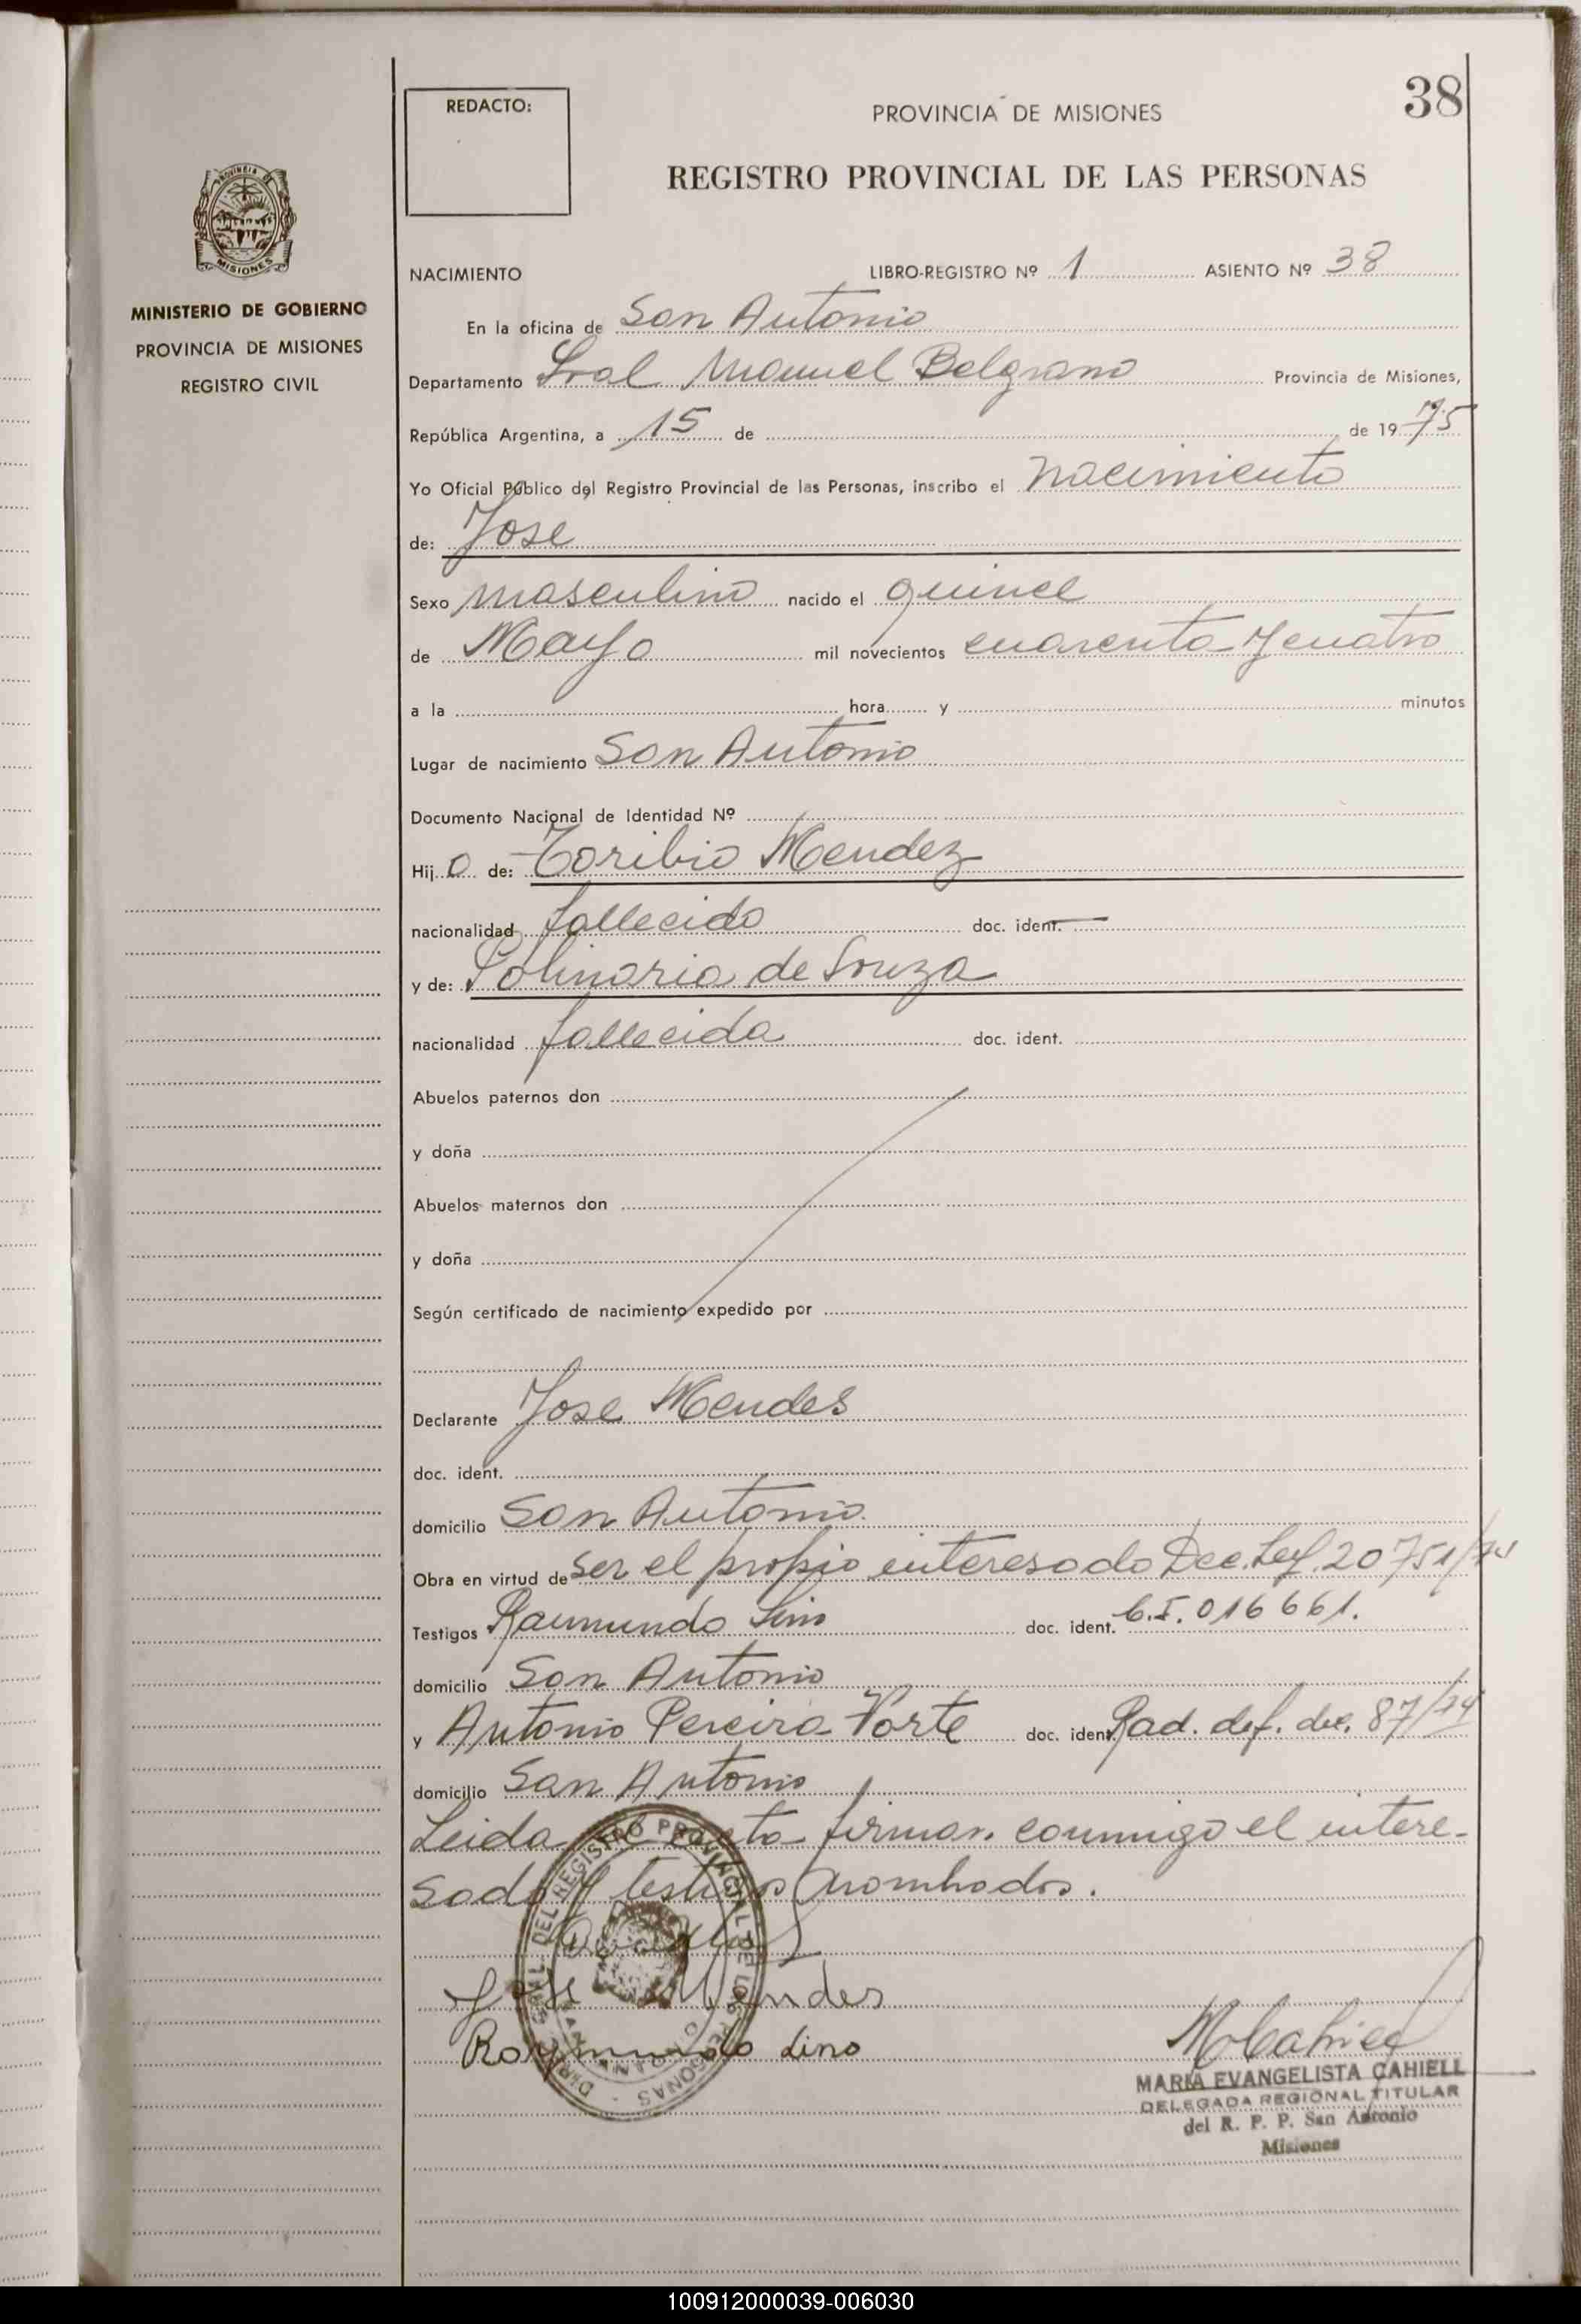 38
REDACTO:
PROVINCIA DE MISIONES
REGISTRO PROVINCIAL DE LAS PERSONAS
PROVINCIA DE
MISIONES
MINISTERIO DE GOBIERNO
PROVINCIA DE MISIONES
REGISTRO CIVIL
NACIMIENTO LIBRO-REGISTRO Nº 1 ASIENTO Nº 38
En la oficina de San Antonio
Departamento Gral Manuel Belgrano Provincia de Misiones,
República Argentina, a 15 de de 1975
Yo Oficial Público del Registro Provincial de las Personas, inscribo el nacimiento
de: Jose
Sexo masculino nacido el quince
de Mayo mil novecientos cuarenta y cuatro
a la hora y minutos
Lugar de nacimiento San Antonio
Documento Nacional de Identidad Nº
Hij o de: Toribio Mendez
nacionalidad fallecido doc. ident. —
y de: Polinaria de Souza
nacionalidad fallecida doc. ident.
Abuelos paternos don
y doña
Abuelos maternos don
y doña
Según certificado de nacimiento expedido por
Declarante Jose Mendes
doc. ident.
domicilio San Antonio.
Obra en virtud de ser el propio interesado Dec. Ley. 20751/74
Testigos Raimundo Lino doc. ident. C.I. 016661.
domicilio San Antonio
y Antonio Pereira Vorte doc. ident. Rad. def. dec. 87/74
domicilio San Antonio
Leida el acta firman conmigo el intere-
sado y testigos nombrados.
DEL REGISTRO PROVINCIAL DE LAS PERSONAS
Jose Mendes
Raymundo Lino
MCahiell
MARIA EVANGELISTA CAHIELL
DELEGADA REGIONAL TITULAR
del R. P. P. San Antonio
Misiones
100912000039-006030